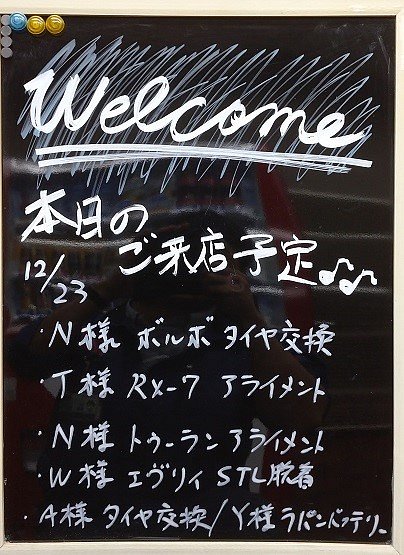 Welcome
本日の
ご来店予定♪♪
12/23
・N様 ボルボ タイヤ交換
・T様 RX-7 アライメント
・N様 トゥーラン アライメント
・W様 エヴリィ STL脱着
・A様 タイヤ交換/Y様 ラパンバッテリー